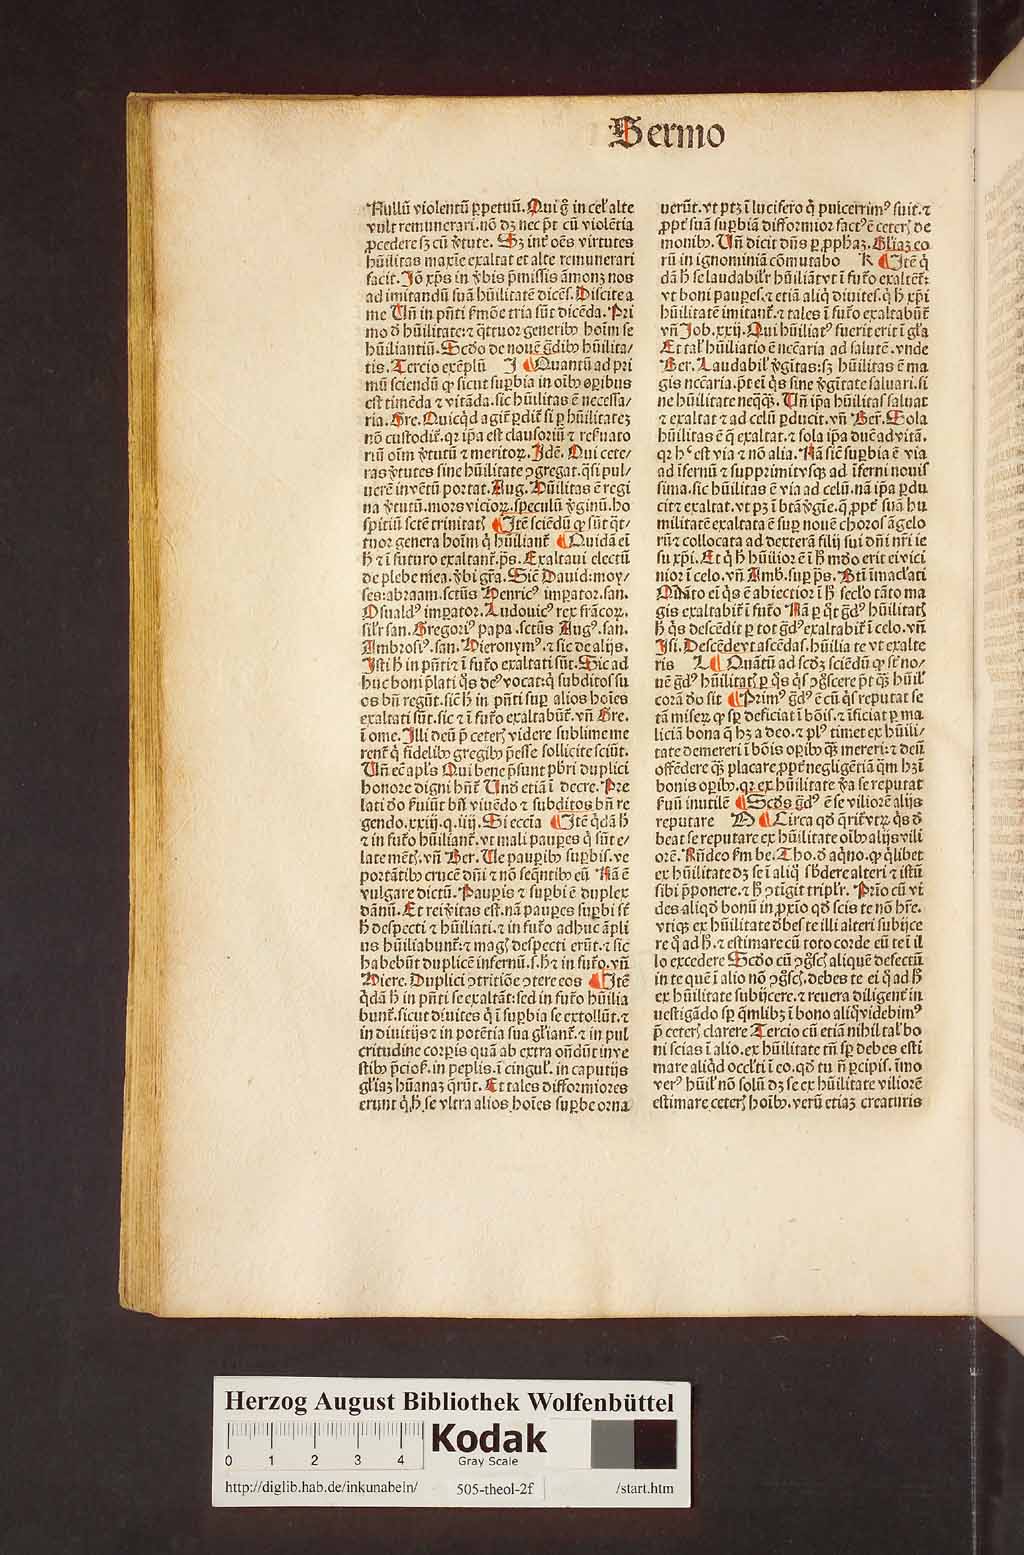 Sermo
Nullū violentū ꝑpetuū. Qui gͦ in cel̕ alte
vult remunerari. nō dꝫ nec pt̄ cū violētia
ꝓcedere sꝫ cū v̓tute. Sꝫ int̓ oēs virtutes
hūilitas maxīe exaltat et alte remunerari
facit. Jō xp̄s in v̓bis p̄missis āmonꝫ nos
ad imitandū suā hūilitatē dicēs. Discite a
me Un̄ in pn̄ti s̓mōe tria sūt dicēda. Pri
mo d̓ hūilitate: ⁊ q̄tuor generibꝰ hoīm se
hūiliantiū. Scd̓o de nouē g̓dibꝰ hūilita/
tis. Tercio exēplū J Quantū ad pri
mū sciendū ꝙ sicut suꝑbia in oībꝰ oꝑibus
est timēda ⁊ vitāda. sic hūilitas ē necessa/
ria. Gre. Quicqd̓ agit̓ ꝑdit̓ si ꝑ hūilitateꝫ
nō custodit̓. qꝛ ip̄a est clausoriū ⁊ reẛuato
riū oīm v̓tutū ⁊ meritoꝝ. Idē. Qui cete/
ras v̓tutes sine hūilitate ꝯgregat. q̄si pul/
uerē in vētū portat. Aug. Hūilitas ē regi
na v̓tutū. mors vicioꝝ. speculū v̓ginū. ho
spitiū sctē trinitatꝭ Itē sciēdū ꝙ sūt q̄t/
tuor genera hoīm q̓ hūiliant̓ Quidā ei
h̓ ⁊ ī futuro exaltant̓. ps̄. Exaltaui electū
de plebe mea. v̓bi gr̄a. Sic̄ Dauid: moy/
ses: abraam. sctūs Henricꝰ imꝑator. san.
Osualdꝰ imꝑator. Ludouicꝰ rex frācoꝝ.
sil̓r san. Gregoriꝰ papa. sctūs Augꝰ. san.
Ambrosiꝰ. san. Hieronymꝰ. ⁊ sic de alijs.
Isti h̓ in pn̄ti ⁊ ī futo̓ exaltati sūt. Sic ad
huc boni p̄lati q̓s deꝰ vocat: q̓ subditos su
os bn̄ regūt. sic̄ h̓ in pn̄ti suꝑ alios hoīes
exaltati sūt. sic ⁊ ī futo̓ exaltabūt̓. vn̄ Gre.
ī ome. Illi deū p̄ ceterꝭ videre sublime me
rent̓ q̓ fidelibꝰ gregibꝰ p̄esse sollicite sciūt.
Un̄ ec̄ apl̄s Qui bene p̄sunt pb̄ri duplici
honore digni hn̄t̓ Und̓ etiā ī decre. Pre
lati d̓o ẛuiūt bn̄ viuēdo ⁊ subditos bn̄ re
gendo. xxiij. q. iiij. Si eccīa Itē qdā h̓
⁊ in futo̓ hūiliant̓. vt mali pauꝑes q̓ sūt e/
late mētꝭ. vn̄ Ber. Ue pauꝑibꝰ suꝑbis. ve
portātibꝰ crucē dn̄i ⁊ nō seq̄ntibꝰ eū Nā ē
vulgare dictū. Pauꝑis ⁊ suꝑbi ē duplex
dānū. Et rei v̓itas est. nā pauꝑes suꝑbi st̄
h̓ despecti ⁊ hūiliati. ⁊ in futo̓ adhuc āpli
us hūiliabunt̓: ⁊ magꝭ despecti erūt. ⁊ sic
habebūt duplicē infernū. s. h̓ ⁊ in futo̓. vn̄
Hiere. Duplici ꝯtritiōe ꝯtere eos Itē
qdā h̓ in pn̄ti se exaltāt: sed in futo̓ hūilia
bunt̓. sicut diuites q̓ ī suꝑbia se extollūt. ⁊
in diuitijs ⁊ in potētia sua gl̓iant̓. ⁊ in pul
critudine corꝑis quā ab extra on̄dūt in ve
stibꝰ p̄ciosꝭ. in peplis. ī cingul̓. in caputijs
gl̓iaꝫ hūanaꝫ q̄rūt. Et tales difformiores
erunt q̓ h̓ se vltra alios hoīes suꝑbe orna
uerūt. vt ptꝫ ī lucifero q̓ pulcerrimꝰ fuit. ⁊
ꝓpt̓ suā suꝑbiā difformior factꝰ ē ceterꝭ de
monibꝰ. Un̄ dicit dn̄s ꝑ ꝓph̓aꝫ. Gl̓iaꝫ eo
rū in ignominiā cōmutabo K Itē q̓
dā h̓ se laudabilr̓ hūiliāt vt ī futo̓ exaltēt̓:
vt boni pauꝑes. ⁊ etiā aliq̓ diuites. q̓ h̓ xp̄i
hūilitatē imitant̓. ⁊ tales ī futo̓ exaltabūt̓
vn̄ Job. xxij. Qui hūiliatꝰ fuerit erit ī gl̓a
Et tal̓ hūiliatio ē nc̄caria ad salutē. vnde
Ber. Laudabil̓ v̓gitas: sꝫ hūilitas ē ma
gis nc̄caria. pt̄ ei q̓s sine v̓gitate saluari. si
ne hūilitate neq̄ꝗ̄. Un̄ ip̄a hūilitas saluat
⁊ exaltat ⁊ ad celū ꝑducit. vn̄ Ber̓. Sola
hūilitas ē q̄ exaltat. ⁊ sola ip̄a ducē ad vitā.
qꝛ hͨ est via ⁊ nō alia. Nā sic̄ suꝑbia ē via
ad īfernū ⁊ supprimit vsqꝫ ad īferni nouis
sima. sic hūilitas ē via ad celū. nā ip̄a ꝑdu
cit ⁊ exaltat. vt pꝫ ī btā v̓gīe. q̄ ꝓpt̓ suā hu
militatē exaltata ē suꝑ nouē choros āgelo
rū ⁊ collocata ad dexterā filij sui dn̄i nr̄i ie
su xp̄i. Et q̓ h̓ hūilior ē ī h̓ mūdo erit ei vici
nior ī celo. vn̄ Amb̓. suꝑ ps̄. Bt̄i īmacl̓ati
Quāto ei q̓s ē abiectior ī h̓ secl̓o tāto ma
gis exaltabit̓ ī futo̓ Nā ꝑ q̓t g̓dꝰ hūilitatꝭ
h̓ q̓s descēdit ꝑ tot g̓dꝰ exaltabit̓ ī celo. vn̄
Isi. Descēde vt ascēdas. hūilia te vt exalte
ris L Quātū ad scd̓ꝫ sciēdū ꝙ st̄ no/
uē g̓dꝰ hūilitatꝭ ꝑ q̓s q̓s ꝯg̓scere pt̄ qꝫ hūil̓
corā d̓o sit Primꝰ g̓dꝰ ē cū q̓s reputat se
tā miseꝝ ꝙ sꝑ deficiat ī bōis. ⁊ īficiat ꝑ ma
liciā bona q̄ hꝫ a deo. ⁊ plꝰ timet ex hūili/
tate demereri ī bōis oꝑibꝰ qꝫ mereri: ⁊ deū
offēdere qꝫ placare. ꝓpt̓ negligētiā qm̄ hꝫ ī
bonis oꝑibꝰ. qꝛ ex hūilitate v̓a se reputat
ẛuū inutilē Scd̓s g̓dꝰ ē se viliorē alijs
reputare M Circa qd̓ q̄rit̓ vtꝝ q̓s d̓
beat se reputare ex hūilitate oībꝰ alijs vili
orē. Rn̄deo ẛm be. Tho. d̓ aq̓no. ꝙ q̓libet
ex hūilitate dꝫ se ī aliq̓ sb̓dere alteri ⁊ istū
sibi p̄ponere. ⁊ h̓ ꝯtigit tripl̓r. Prīo cū vi
des aliqd̓ bonū in ꝓxīo qd̓ scis te nō hr̄e.
vtiqꝫ ex hūilitate d̓bes te illi alteri subijce
re q̓ ad h̓. ⁊ estimare cū toto corde eū te ī il
lo excedere Scd̓o cū ꝯg̓scꝭ aliquē defectū
in te quē ī alio nō ꝯg̓scꝭ. debes te ei q̓ ad h̓
ex hūilitate subijcere. ⁊ reuera diligent̓ in
uestigādo sꝑ q̄mlibꝫ ī bono aliq̓ videbimꝰ
p̄ ceterꝭ clarere Tercio cū etiā nihil tal̓ bo
ni scias ī alio. ex hūilitate tn̄ sꝑ debes esti
mare aliqd̓ occl̓ti ī eo. qd̓ tu n̄ ꝑcipis. īmo
verꝰ hūil̓ nō solū dꝫ se ex hūilitate viliorē
estimare ceterꝭ hoībꝰ. verū etiaꝫ creaturis
Herzog August Bibliothek Wolfenbüttel
0 1 2 3 4
Kodak
Gray Scale
http://diglib.hab.de/inkunabeln/ 505-theol-2f /start.htm